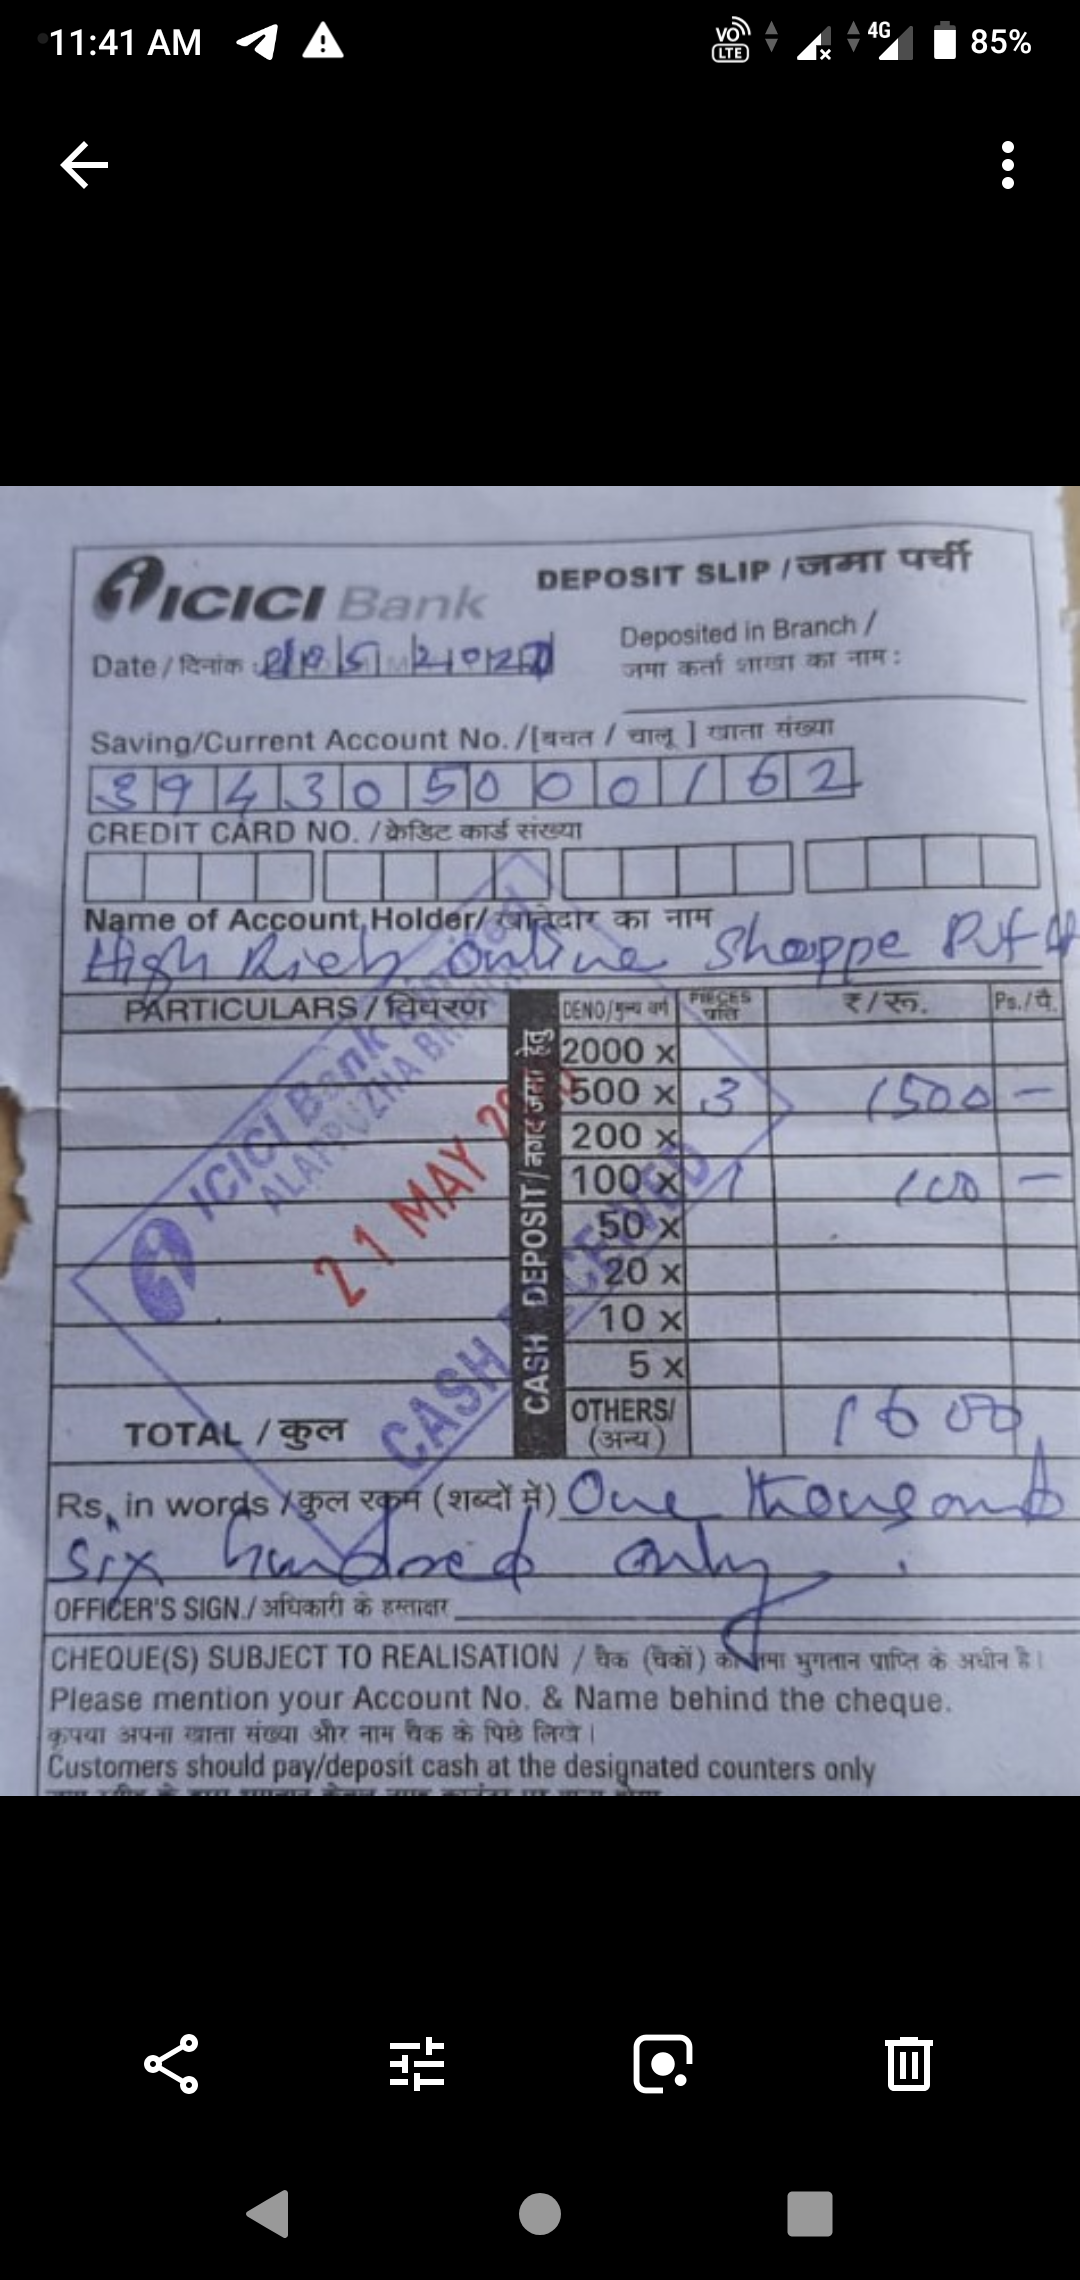 11:41 AM VO LTE 4G 85%
ICICI Bank DEPOSIT SLIP / जमा पर्ची
Date / दिनांक :
Deposited in Branch /
जमा कर्ता शाखा का नाम :
Saving/Current Account No./[बचत / चालू ] खाता संख्या
394305000162
CREDIT CARD NO. / क्रेडिट कार्ड संख्या
Name of Account Holder/ खातेदार का नाम
High Rich Online Shoppe Pvt
PARTICULARS / विवरण DENO/मुल्य वर्ग PIECES प्रति ₹/रू. Ps./पै.
CASH DEPOSIT/नकद जमा हेतु
2000 x
500 x 3 1500 —
200 x
100 x 1 100 —
50 x
20 x
10 x
5 x
TOTAL / कुल OTHERS/ (अन्य) 1600
ICICI Bank Limited
ALAPPUZHA BRANCH
21 MAY
CASH RECEIVED
Rs. in words / कुल रकम (शब्दों में) One thousand
six hundred only.
OFFICER'S SIGN./ अधिकारी के हस्ताक्षर
CHEQUE(S) SUBJECT TO REALISATION / चैक (चैकों) का जमा भुगतान प्राप्ति के अधीन है।
Please mention your Account No. & Name behind the cheque.
कृपया अपना खाता संख्या और नाम चैक के पिछे लिखे।
Customers should pay/deposit cash at the designated counters only